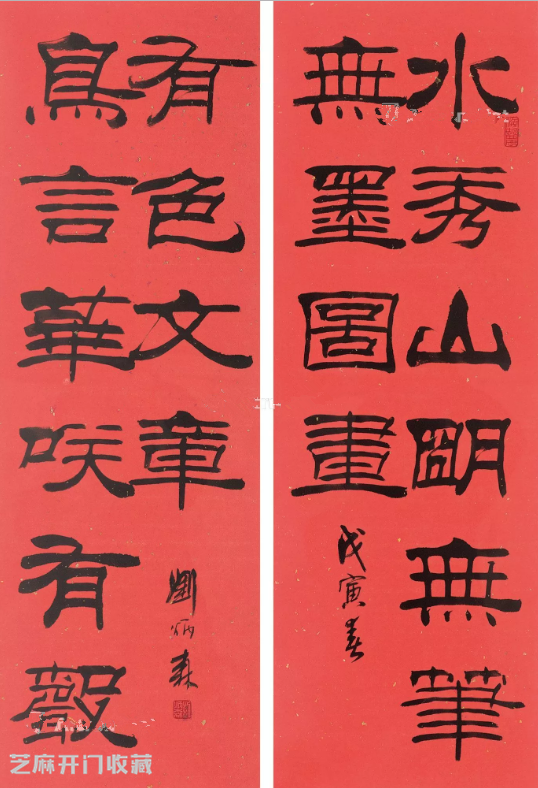 水秀山朙無筆
無墨圖畫
戊寅春
鳥言華咲有聲
有色文章
劉炳森
芝麻开门收藏